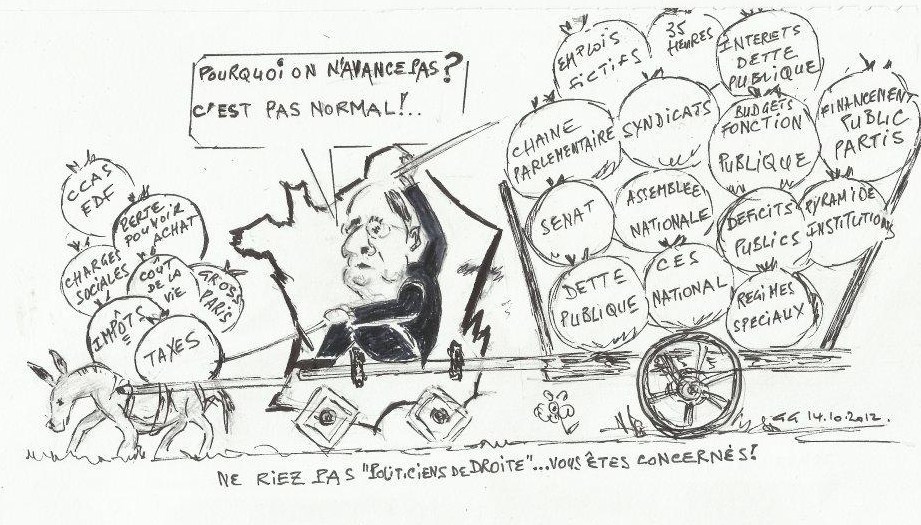 POURQUOI ON N'AVANCE PAS?
C'EST PAS NORMAL!..
EMPLOIS
FICTIFS
35
HEURES
INTERETS
DETTE
PUBLIQUE
CHAINE
PARLEMENTAIRE
SYNDICATS
BUDGETS
FONCTION
PUBLIQUE
FINANCEMENT
PUBLIC
PARTIS
SENAT
ASSEMBLÉE
NATIONALE
DEFICITS
PUBLICS
PYRAMIDE
INSTITUTIONS
DETTE
PUBLIQUE
CES
NATIONAL
REGIMES
SPECIAUX
CCAS
EDF
PERTE
POUVOIR
ACHAT
CHARGES
SOCIALES
COÛT
DE LA
VIE
GROSS
PARIS
IMPÔTS
TAXES
GG 14.10.2012.
NE RIEZ PAS "POLITICIENS DE DROITE"...VOUS ÊTES CONCERNÉS!